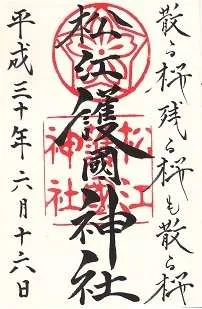 散る桜残る桜も散る桜
松江護國神社
松江護國神社
平成三十年六月十六日